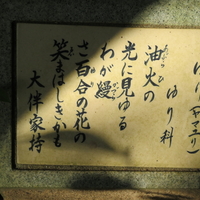 ゆり(ヤマユリ)
ゆり科
油火の
光に見ゆる
わが縵
さ百合の花の
笑まはしきかも
大伴家持